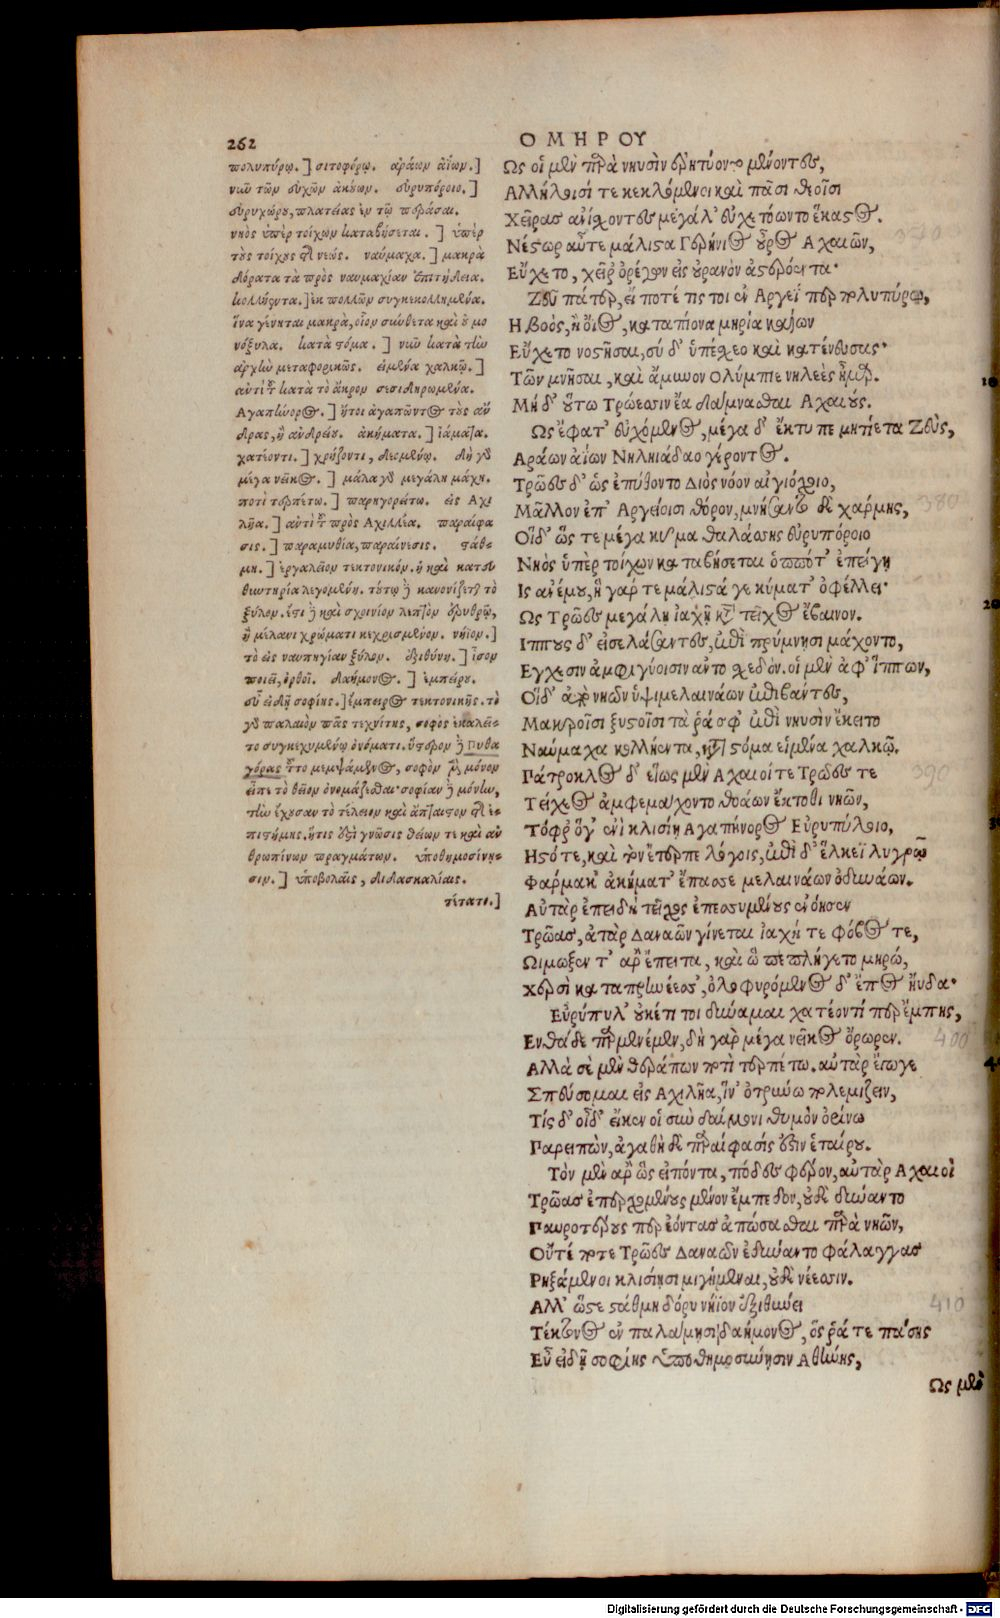 262
ΟΜΗΡΟΥ
πολυπύρῳ.] σιτοφόρῳ. ἀράων ἀΐων.]
νιῦ τῶν εὐχῶν ἀκούων. εὐρυπόροιο.]
εὐρυχώρου, πλατείας ἐν τῷ περᾶσαι.
νηὸς ὑπὲρ τοίχων καταβήσεται.] ὑπὲρ
τοὺς τοίχους τῆς νεώς. ναύμαχα.] μακρὰ
δόρατα τὰ πρὸς ναυμαχίαν ἐπιτήδεια.
κολλήεντα.] ἐκ πολλῶν συγκεκολλημένα.
ἵνα γένηται μακρὰ, οἷον σύνθετα καὶ οὐ μο
νόξυλα. κατὰ στόμα.] νῦν κατὰ τὴν
ἀρχὴν μεταφορικῶς. εἱμένα χαλκῷ.]
αὐτὶ τοῦ κατὰ τὸ ἄκρον σεσιδηρωμένα.
Αγαπήνορος.] ἤτοι ἀγαπῶντος τοὺς ἄν
δρας, ἢ ἀνδρείου. ἀκήματα.] ἰάματα.
χατέοντι.] χρῄζοντι, δεομένῳ. δὴ γὰρ
μέγα νεῖκος.] μάλα γὰρ μεγάλη μάχη.
ποτὶ τερπέτω.] παρηγορείτω. εἰς Αχι
λῆα.] αὐτὶ τοῦ πρὸς Αχιλλέα. παραίφα
σις.] παραμυθία, παραίνεσις. στάθ-
μη.] ἐργαλεῖον τεκτονικόν. ἡ καὶ κατευ
θυντηρία λεγομένη. τούτῳ δὲ κανονίζεται τὸ
ξύλον. ἔστι δὲ καὶ σχοινίον λεπτὸν ἐρυθρῷ,
ἢ μέλανι χρώματι κεχρισμένον. νήϊον.]
τὸ εἰς ναυπηγίαν ξύλον. ἐξιθύνει.] ἴσον
ποιεῖ, ὀρθοῖ. δαήμονος.] ἐμπείρου.
εὖ εἰδῇ σοφίης.] ἔμπειρος τεκτονικῆς. τὸ
γὰρ παλαιὸν πᾶς τεχνίτης, σοφὸς ἐκαλεῖ-
το συγκεχυμένῳ ὀνόματι. ὕστερον δὲ Πυθα
γόρας τοῦτο μεμψάμενος, σοφὸν μὲν μόνον
εἶπε τὸ θεῖον ὀνομάζεσθαι· σοφίαν δὲ μόνην,
τὴν ἔχουσαν τὸ τέλειον καὶ ἄπταιστον τῆς ἐ-
πιστήμης. ἥτις ἐστὶ γνῶσις θείων τε καὶ ἀν
θρωπίνων πραγμάτων. ὑποθημοσύνῃ-
σιν.] ὑποβολαῖς, διδασκαλίαις.
τέτατο.]
Ως οἱ μὲν παρὰ νηυσὶν ἐρητύοντο μένοντες,
Αλλήλοισί τε κεκλόμενοι καὶ πᾶσι θεοῖσι
Χεῖρας ἀνίσχοντες μεγάλ' εὐχετόωντο ἕκαστος.
Νέστωρ αὖτε μάλιστα Γερήνιος οὖρος Αχαιῶν,
Εὔχετο, χεῖρ' ὀρέγων εἰς οὐρανὸν ἀστερόεντα·
Ζεῦ πάτερ, εἴ ποτέ τίς τοι ἐν Αργεΐ περ πολυπύρῳ,
Η βοὸς, ἢ ὄϊος, κατὰ πίονα μηρία καίων
Εὔχετο νοστῆσαι, σύ δ' ὑπέσχεο καὶ κατένευσας·
Τῶν μνῆσαι, καὶ ἄμυνον Ολύμπιε νηλεὲς ἦμαρ.
Μή δ' οὕτω Τρώεσσιν ἔα δάμνασθαι Αχαιούς.
Ως ἔφατ' εὐχόμενος, μέγα δ' ἔκτυπε μητίετα Ζεὺς,
Αράων ἀΐων Νηληιάδαο γέροντος.
Τρῶες δ' ὡς ἐπύθοντο Διὸς νόον αἰγιόχοιο,
Μᾶλλον ἐπ' Αργείοισι θόρον, μνήσαντο δὲ χάρμης,
Οἵδ' ὥς τε μέγα κῦμα θαλάσσης εὐρυπόροιο
Νηὸς ὑπὲρ τοίχων καταβήσεται ὁππότ' ἐπείγῃ
Ις ἀνέμου, ἣ γάρ τε μάλιστά γε κύματ' ὀφέλλει·
Ως Τρῶες μεγάλῃ ἰαχῇ κατὰ τεῖχος ἔβαινον.
Ιππους δ' εἰσελάσαντες, ἐπὶ πρύμνῃσι μάχοντο,
Εγχεσιν ἀμφιγύοισιν αὐτοσχεδόν. οἱ μὲν ἀφ' ἵππων,
Οἵδ' ἀπὸ νηῶν ὕψι μελαινάων ἐπιβάντες,
Μακροῖσι ξυστοῖσι τὰ ῥά σφ' ἐπὶ νηυσὶν ἔκειτο
Ναύμαχα κολλήεντα, κατὰ στόμα εἱμένα χαλκῷ.
Πάτροκλος δ' εἵως μὲν Αχαιοί τε Τρῶές τε
Τείχεος ἀμφεμάχοντο θοάων ἔκτοθι νηῶν,
Τόφρ' ὅγ' ἐνὶ κλισίῃ Αγαπήνορος Εὐρυπύλοιο,
Ηστό τε, καὶ τὸν ἔτερπε λόγοις, ἐπὶ δ' ἕλκεϊ λυγρῷ
Φάρμακ' ἀκήματ' ἔπασσε μελαινάων ὀδυνάων.
Αὐτὰρ ἐπειδὴ τεῖχος ἐπεσσυμένους ἐνόησεν
Τρῶας, ἀτὰρ Δαναῶν γίνεται ἰαχή τε φόβος τε,
Ωιμωξέν τ' ἄρ' ἔπειτα, καὶ ὣ πεπλήγετο μηρώ,
Χερσὶ καταπρηνέεσσ', ὀλοφυρόμενος δ' ἔπος ηὔδα·
Εὐρύπυλ' οὐκέτι τοι δύναμαι χατέοντί περ ἔμπης,
Ενθάδε παρμενέμεν, δὴ γὰρ μέγα νεῖκος ὄρωρεν.
Αλλὰ σὲ μὲν θεράπων ποτὶ τερπέτω. αὐτὰρ ἔγωγε
Σπεύσομαι εἰς Αχιλῆα, ἵν' ὀτρύνω πολεμίζειν,
Τίς δ' οἶδ' εἴκεν οἱ σὺν δαίμονι θυμὸν ὀρίνω
Παρειπών, ἀγαθὴ δὲ παραίφασίς ἐστιν ἑταίρου.
Τὸν μὲν ἄρ' ὣς εἰπόντα, πόδες φέρον, αὐτὰρ Αχαιοὶ
Τρῶας ἐπερχομένους μένον ἔμπεδον, οὐδὲ δύναντο
Παυροτέρους περ ἐόντας ἀπώσασθαι παρὰ νηῶν,
Οὔτέ ποτε Τρῶες Δαναῶν ἐδύναντο φάλαγγας
Ρηξάμενοι κλισίῃσι μιγήμεναι, οὐδὲ νέεσσιν.
Αλλ' ὥστε στάθμη δόρυ νήϊον ἐξιθύνει
Τέκτονος ἐν παλάμῃσι δαήμονος, ὅς ῥά τε πάσης
Εὖ εἰδῇ σοφίης ὑποθημοσύνῃσιν Αθήνης,
Ως μὲν
370
380
390
400
410
10
20
Digitalisierung gefördert durch die Deutsche Forschungsgemeinschaft - DFG